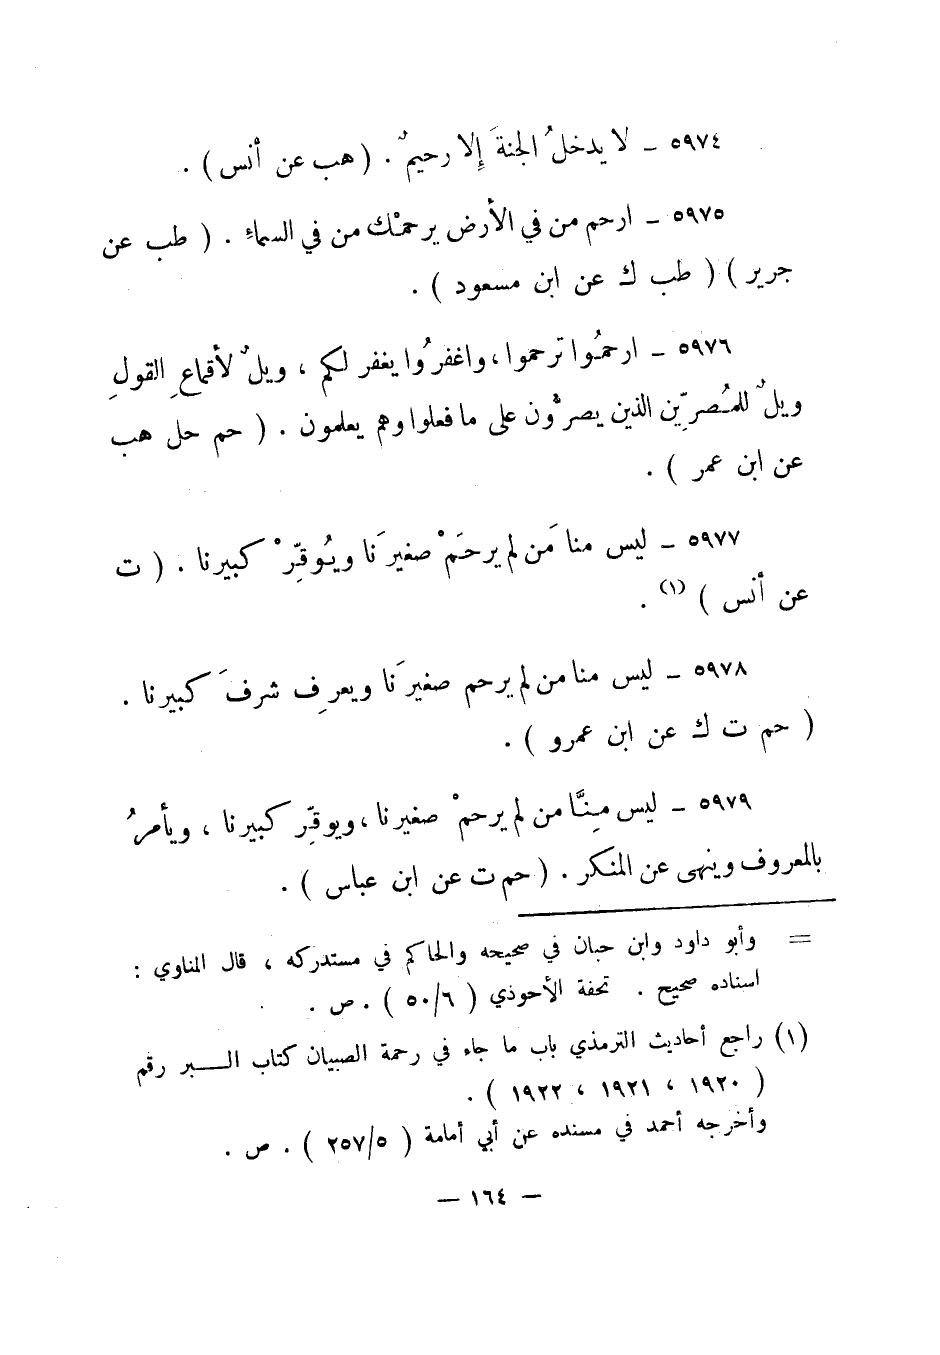 ٥٩٧٤ ـ لا يدخلُ الجنةَ إِلا رحيمٌ . ( هب عن أنس ) .
٥٩٧٥ ـ ارحم من في الأرض يرحمْك من في السماءِ . ( طب عن
جرير ) ( طب ك عن ابن مسعود ) .
٥٩٧٦ ـ ارحمُوا ترحموا ، واغفرُوا يغفر لكم ، ويلٌ لأقماعِ القولِ
ويلٌ للمُصرِّين الذين يصرُّون على ما فعلوا وهم يعلمون . ( حم حل هب
عن ابن عمر ) .
٥٩٧٧ ـ ليس منا مَن لم يرحَمْ صغيرَنا ويُوقِّرْ كبيرنا . ( ت
عن أنس ) (١) .
٥٩٧٨ ـ ليس منا من لم يرحم صغيرَنا ويعرِف شرفَ كبيرنا .
( حم ت ك عن ابن عمرو ) .
٥٩٧٩ ـ ليس مِنَّا من لم يرحمْ صغيرنا ، ويوقِّر كبيرنا ، ويأمرُ
بالمعروف وينهى عن المنكر . ( حم ت عن ابن عباس ) .
= وأبو داود وابن حبان في صحيحه والحاكم في مستدركه ، قال المناوي :
اسناده صحيح . تحفة الأحوذي ( ٥٠/٦ ) . ص .
(١) راجع أحاديث الترمذي باب ما جاء في رحمة الصبيان كتاب البر رقم
( ١٩٢٠ ، ١٩٢١ ، ١٩٢٢ ) .
وأخرجه أحمد في مسنده عن أبي أمامة ( ٢٥٧/٥ ) . ص .
— ١٦٤ —